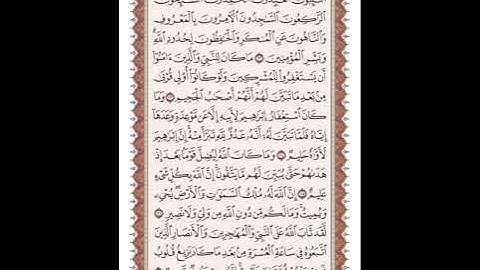 ٱلرَّٰكِعُونَ ٱلسَّٰجِدُونَ ٱلْءَامِرُونَ بِٱلْمَعْرُوفِ
وَٱلنَّاهُونَ عَنِ ٱلْمُنكَرِ وَٱلْحَٰفِظُونَ لِحُدُودِ ٱللَّهِ
وَبَشِّرِ ٱلْمُؤْمِنِينَ مَا كَانَ لِلنَّبِيِّ وَٱلَّذِينَ ءَامَنُوٓا۟
أَن يَسْتَغْفِرُوا۟ لِلْمُشْرِكِينَ وَلَوْ كَانُوٓا۟ أُو۟لِى قُرْبَىٰ
مِنۢ بَعْدِ مَا تَبَيَّنَ لَهُمْ أَنَّهُمْ أَصْحَٰبُ ٱلْجَحِيمِ وَمَا
كَانَ ٱسْتِغْفَارُ إِبْرَٰهِيمَ لِأَبِيهِ إِلَّا عَن مَّوْعِدَةٍ وَعَدَهَآ
إِيَّاهُ فَلَمَّا تَبَيَّنَ لَهُۥٓ أَنَّهُۥ عَدُوٌّ لِّلَّهِ تَبَرَّأَ مِنْهُ إِنَّ إِبْرَٰهِيمَ
لَأَوَّٰهٌ حَلِيمٌ وَمَا كَانَ ٱللَّهُ لِيُضِلَّ قَوْمًۢا بَعْدَ إِذْ
هَدَىٰهُمْ حَتَّىٰ يُبَيِّنَ لَهُم مَّا يَتَّقُونَ إِنَّ ٱللَّهَ بِكُلِّ شَىْءٍ
عَلِيمٌ إِنَّ ٱللَّهَ لَهُۥ مُلْكُ ٱلسَّمَٰوَٰتِ وَٱلْأَرْضِ يُحْىِۦ
وَيُمِيتُ وَمَا لَكُم مِّن دُونِ ٱللَّهِ مِن وَلِىٍّ وَلَا نَصِيرٍ
لَّقَد تَّابَ ٱللَّهُ عَلَى ٱلنَّبِىِّ وَٱلْمُهَٰجِرِينَ وَٱلْأَنصَارِ ٱلَّذِينَ
ٱتَّبَعُوهُ فِى سَاعَةِ ٱلْعُسْرَةِ مِنۢ بَعْدِ مَا كَادَ يَزِيغُ قُلُوبُ